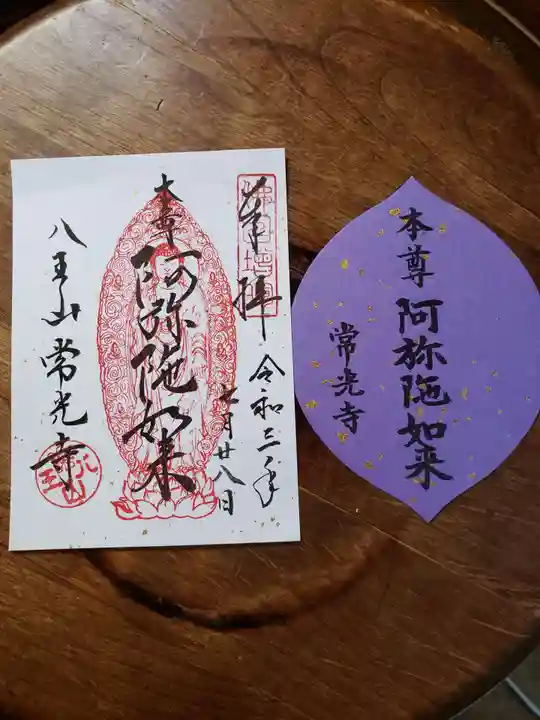 奉拝
令和三年
七月廿八日
本尊
阿弥陀如来
八王山常光寺
八王山
本尊 阿弥陀如来
常光寺